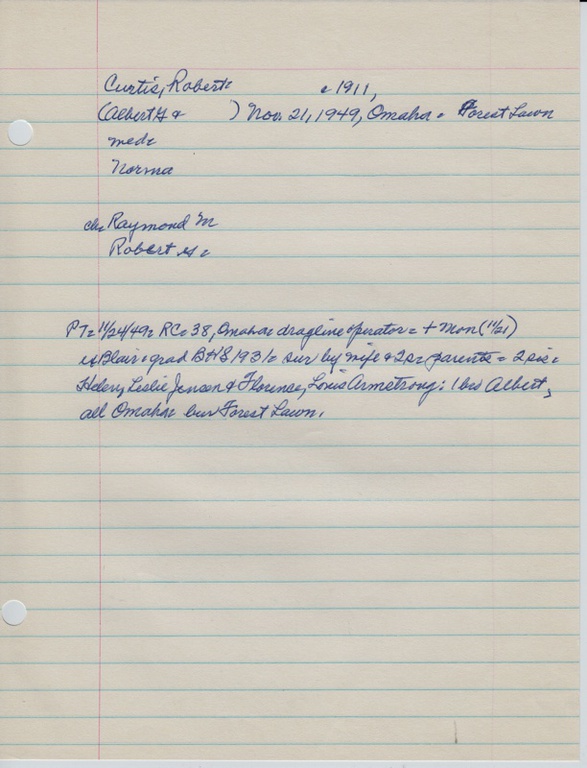 Curtis, Robert= c 1911,
(Albert H & ) Nov. 21, 1949, Omaha = Forest Lawn
med=
Norma
ch= Raymond M
Robert G =
PT= 11/24/49= RC= 38, Omaha= dragline operator = + Mon (11/21)
Blair = grad BHS 1931= sur by wife & 2s= parents = 2 sis=
Helen, Leslie Jensen & Florence, Louis Armstrong: 1 bro Albert,
all Omaha= bur Forest Lawn.